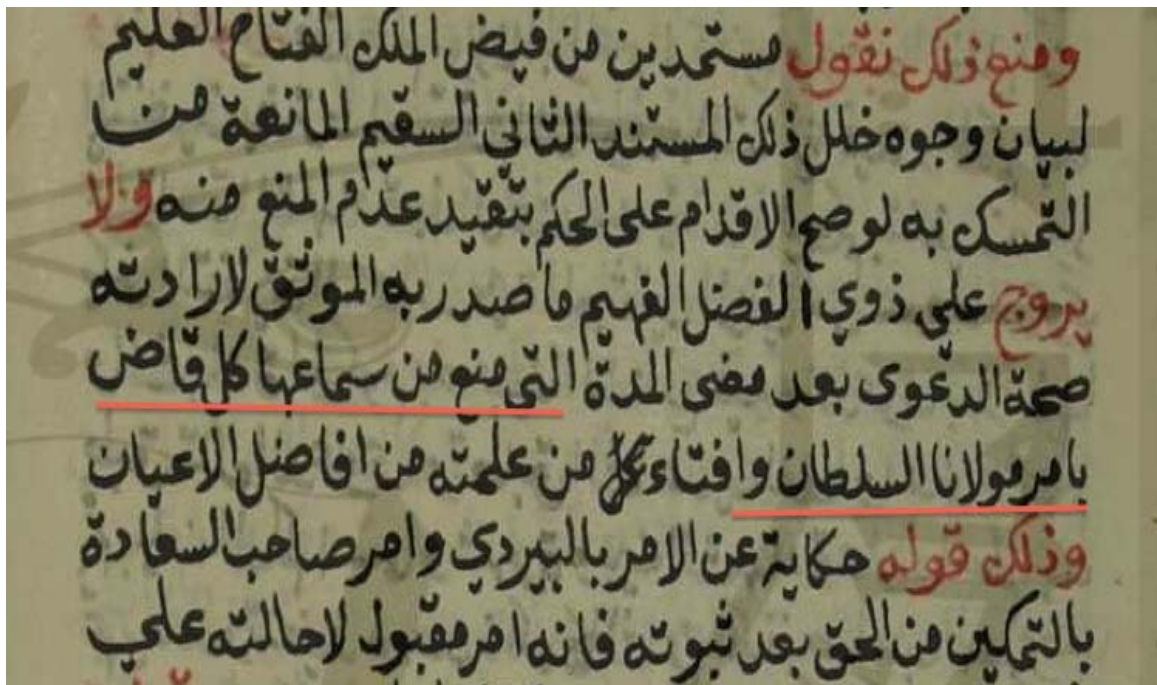 ومنع ذلك نقول مستمدين من فيض الملك الفتاح العليم
لبيان وجوه خلل ذلك المستند الثاني السقيم المانعة من
التمسك به لوصح الاقدام على الحكم بتقيد عدم المنع منه ولا
يروج على ذوي الفضل الفهيم ما صدر به الموثق لارادته
صحة الدعوى بعد مضى المدة التي منع من سماعها كل قاض
بامر مولانا السلطان وافتاء كل من علمته من افاضل الاعيان
وذلك قوله حكاية عن الامر بالبيردي وامر صاحب السعادة
بالتمكين من الحق بعد ثبوته فانه امر مقبول لاحالته علي